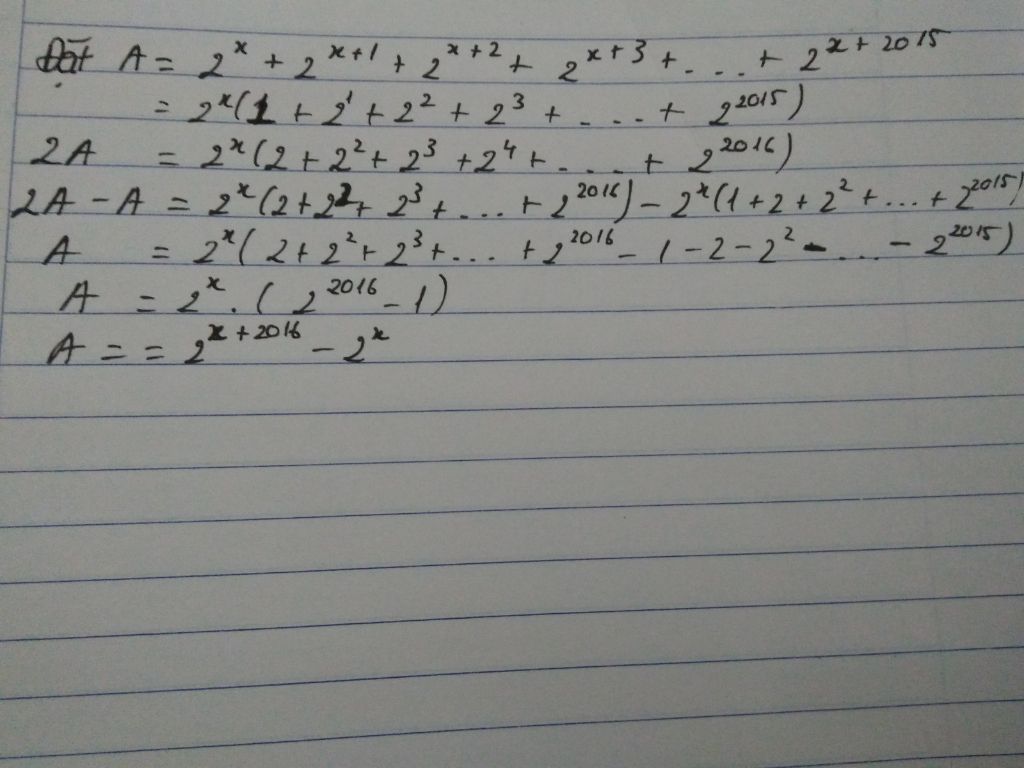 Đặt A = 2^x + 2^{x+1} + 2^{x+2} + 2^{x+3} + .... + 2^{x+2015}
= 2^x(1 + 2^1 + 2^2 + 2^3 + .... + 2^{2015})
2A = 2^x(2 + 2^2 + 2^3 + 2^4 + .... + 2^{2016})
2A - A = 2^x(2 + 2^2 + 2^3 + .... + 2^{2016}) - 2^x(1 + 2 + 2^2 + ... + 2^{2015})
A = 2^x(2 + 2^2 + 2^3 + ... + 2^{2016} - 1 - 2 - 2^2 - ... - 2^{2015})
A = 2^x . (2^{2016} - 1)
A = = 2^{x+2016} - 2^x